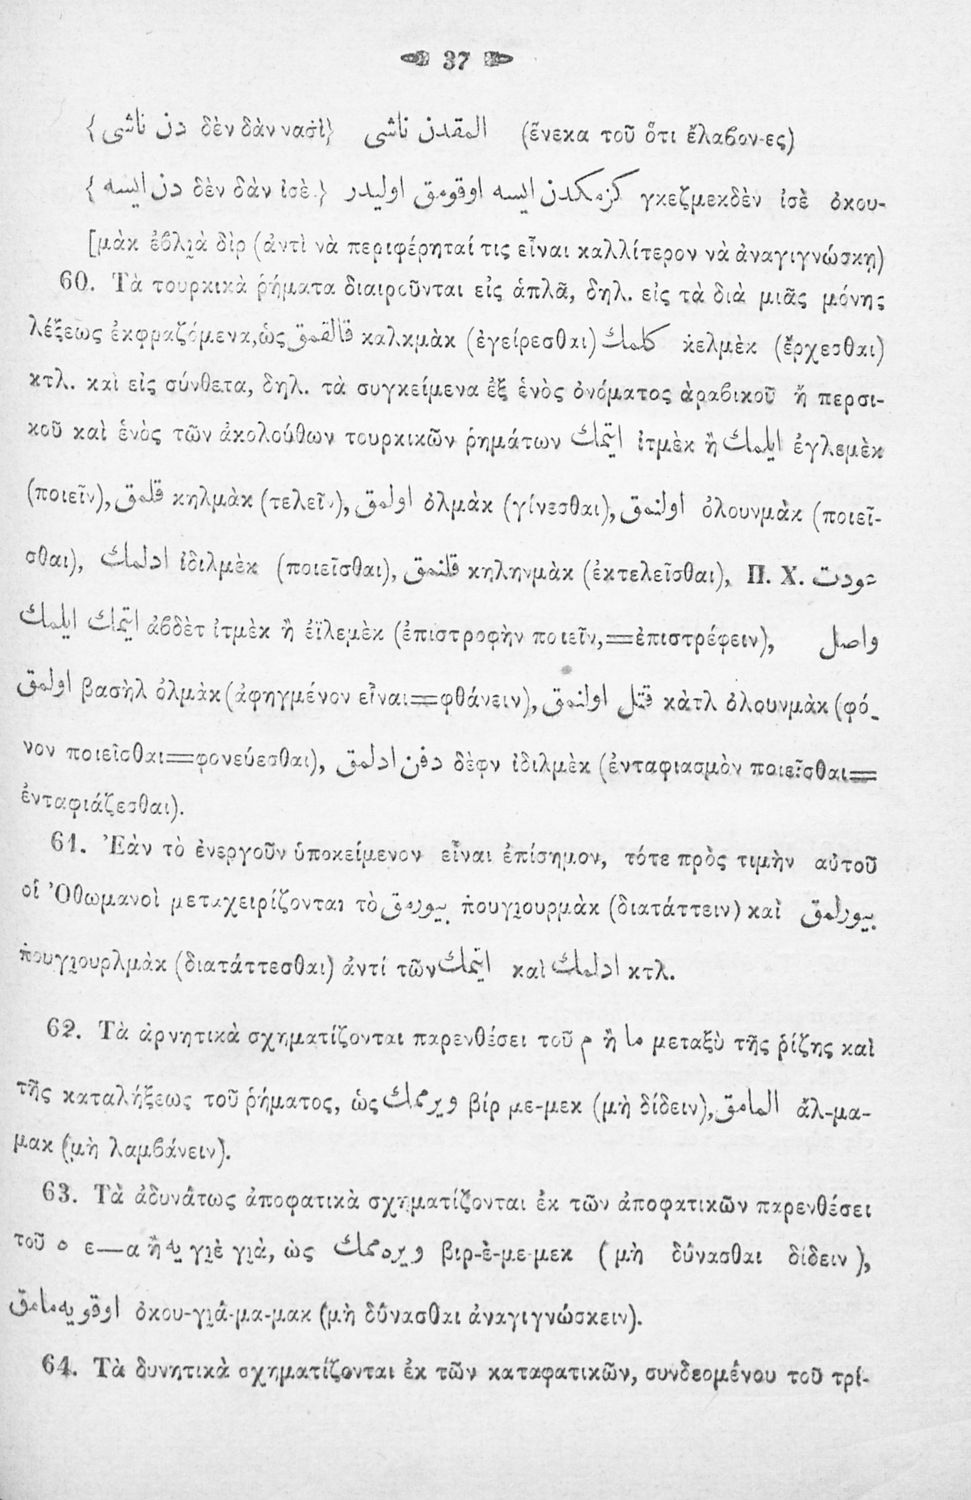 37
{دن ناشی δὲν δὰν νασὶ} المقدن ناشی (ἕνεκα τοῦ ὅτι ἔλαβον-ες)
{دن ايسه δὲν δὰν ἰσὲ.} كزمكدن ايسه اوقومق اوليدر γκεζμεκδὲν ἰσὲ ὀκου-
[μὰκ ἐβλιὰ δὶρ (ἀντὶ νὰ περιφέρηταί τις εἶναι καλλίτερον νὰ ἀναγιγνώσκῃ)
60. Τὰ τουρκικὰ ῥήματα διαιροῦνται εἰς ἁπλᾶ, δηλ. εἰς τὰ διὰ μιᾶς μόνης
λέξεως ἐκφραζόμενα, ὡς قالقمق καλκμὰκ (ἐγείρεσθαι) كلمك κελμὲκ (ἔρχεσθαι)
κτλ. καὶ εἰς σύνθετα, δηλ. τὰ συγκείμενα ἐξ ἑνὸς ὀνόματος ἀραβικοῦ ἢ περσι-
κοῦ καὶ ἑνὸς τῶν ἀκολούθων τουρκικῶν ῥημάτων ايتمك ἰτμὲκ ἢ ايلمك ἐγλεμὲκ
(ποιεῖν), قلمق κηλμὰκ (τελεῖν), اولمق ὀλμὰκ (γίνεσθαι), اولنمق ὀλουνμὰκ (ποιεῖ-
σθαι), ادلمك ἰδιλμὲκ (ποιεῖσθαι), قلنمق κηληνμὰκ (ἐκτελεῖσθαι), Π. Χ. عودت
ايتمك ايلمك ἀβδὲτ ἰτμὲκ ἢ ἐϊλεμὲκ (ἐπιστροφὴν ποιεῖν,=ἐπιστρέφειν), واصل
اولمق βασὴλ ὀλμὰκ (ἀφηγμένον εἶναι=φθάνειν), قتل اولنمق κὰτλ ὀλουνμὰκ (φό-
νον ποιεῖσθαι=φονεύεσθαι), دفن ادلمق δὲφν ἰδιλμὲκ (ἐνταφιασμὸν ποιεῖσθαι=
ἐνταφιάζεσθαι).
61. Ἐὰν τὸ ἐνεργοῦν ὑποκείμενον εἶναι ἐπίσημον, τότε πρὸς τιμὴν αὐτοῦ
οἱ Ὀθωμανοὶ μεταχειρίζονται τὸ بيورمق πουγιουρμὰκ (διατάττειν) καὶ بيورلمق
πουγιουρλμὰκ (διατάττεσθαι) ἀντί τῶν ايتمك καὶ ادلمك κτλ.
62. Τὰ ἀρνητικὰ σχηματίζονται παρενθέσει τοῦ م ἢ ما μεταξὺ τῆς ῥίζης καὶ
τῆς καταλήξεως τοῦ ῥήματος, ὡς ويرممك βίρ με-μεκ (μὴ δίδειν), المامق ἄλ-μα-
μακ (μὴ λαμβάνειν).
63. Τὰ ἀδυνάτως ἀποφατικὰ σχηματίζονται ἐκ τῶν ἀποφατικῶν παρενθέσει
τοῦ ه ε—α ἢ يه γιὲ γιὰ, ὡς ويرهممك βιρ-ὲ-με-μεκ (μὴ δύνασθαι δίδειν),
اوقويهمامق ὀκου-γιά-μα-μακ (μὴ δύνασθαι ἀναγιγνώσκειν).
64. Τὰ δυνητικὰ σχηματίζονται ἐκ τῶν καταφατικῶν, συνδεομένου τοῦ τρί-